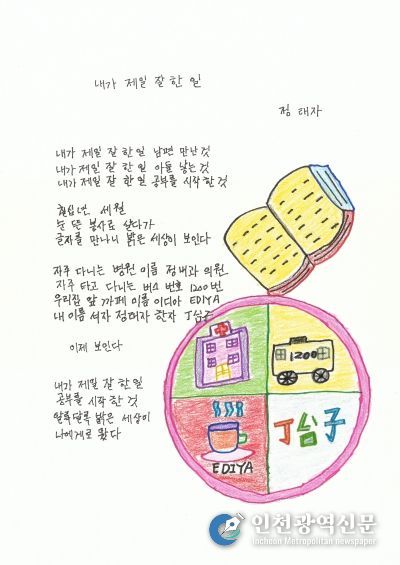 내가 제일 잘 한 일
정 태자
내가 제일 잘 한 일 남편 만난 것
내가 제일 잘 한 일 아들 낳는것
내가 제일 잘 한 일 공부를 시작 한 것
칠십년 세월
눈 뜬 봉사로 살다가
글자를 만나니 밝은 세상이 보인다
자주 다니는 병원 이름 정내과 의원
자주 타고 다니는 버스 번호 1200번
우리집 앞 까페 이름 이디아 EDIYA
내 이름 석자 정태자 한자 丁台子
이제 보인다
내가 제일 잘 한 일
공부를 시작 한 것
알록달록 밝은 세상이
나에게로 왔다
1200
EDIYA
丁台子
인천광역신문
Incheon Metropolitan newspaper